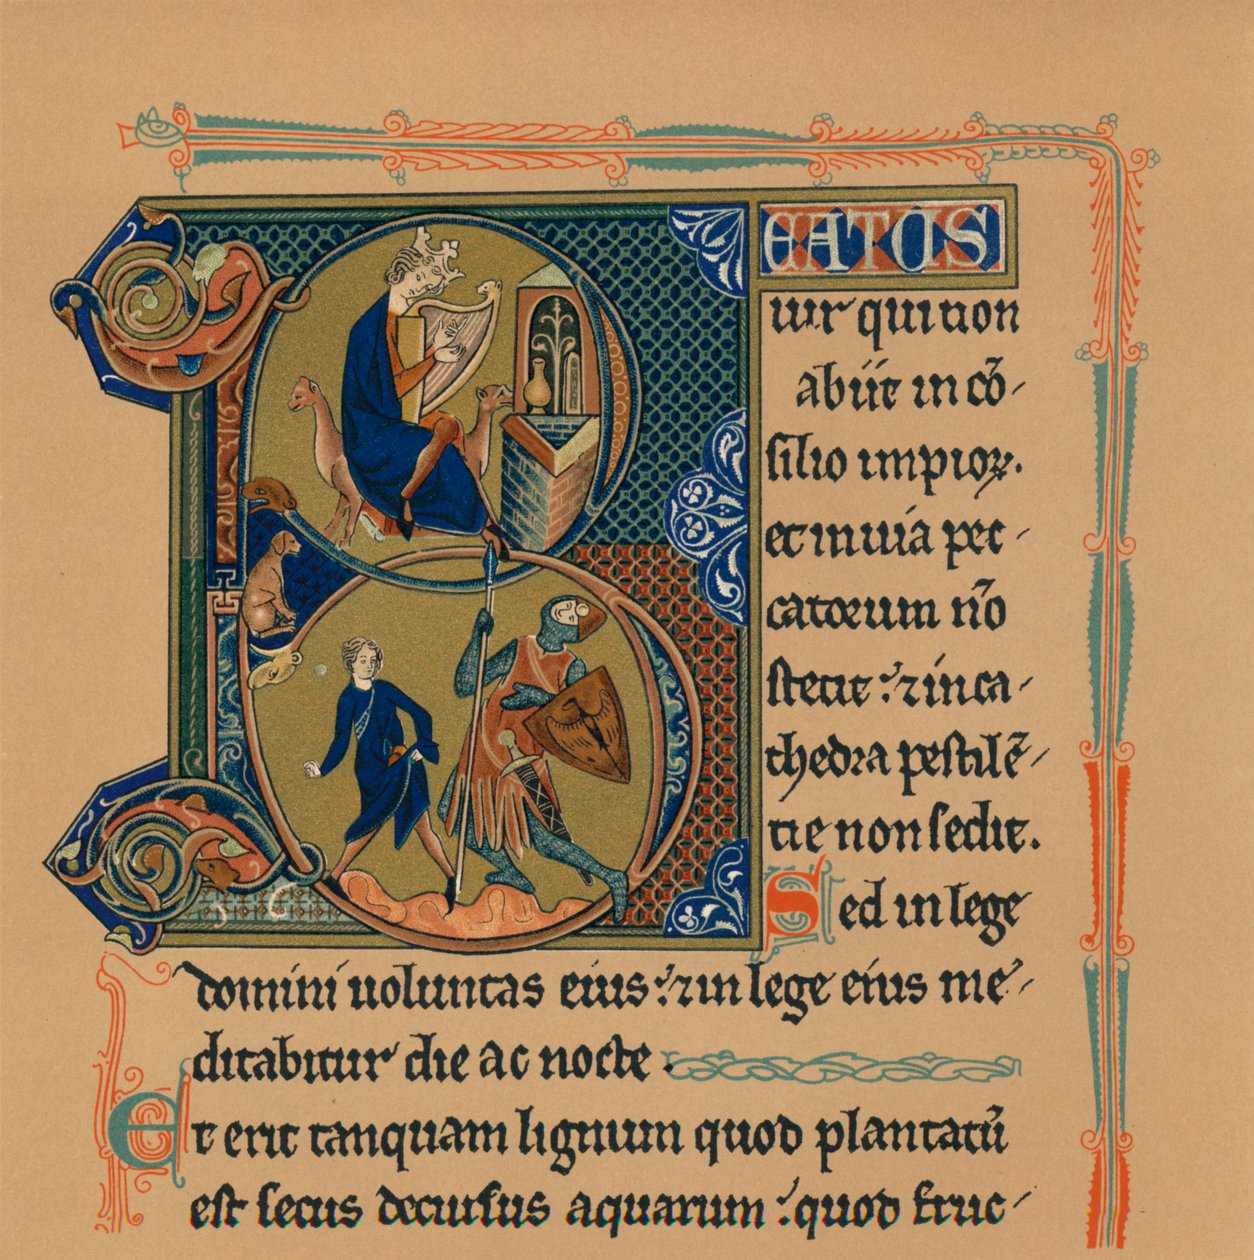 BEATUS
uir qui non
abiit in cō-
silio impioꝝ.
et in uia pec-
catorum nō
stetit : ⁊ in ca-
thedra pestilē-
tie non sedit.
Sed in lege
domini uoluntas eius : ⁊ in lege eius me-
ditabitur die ac nocte .
Et erit tanquam lignum quod plantatū
est secus decursus aquarum : quod fruc-